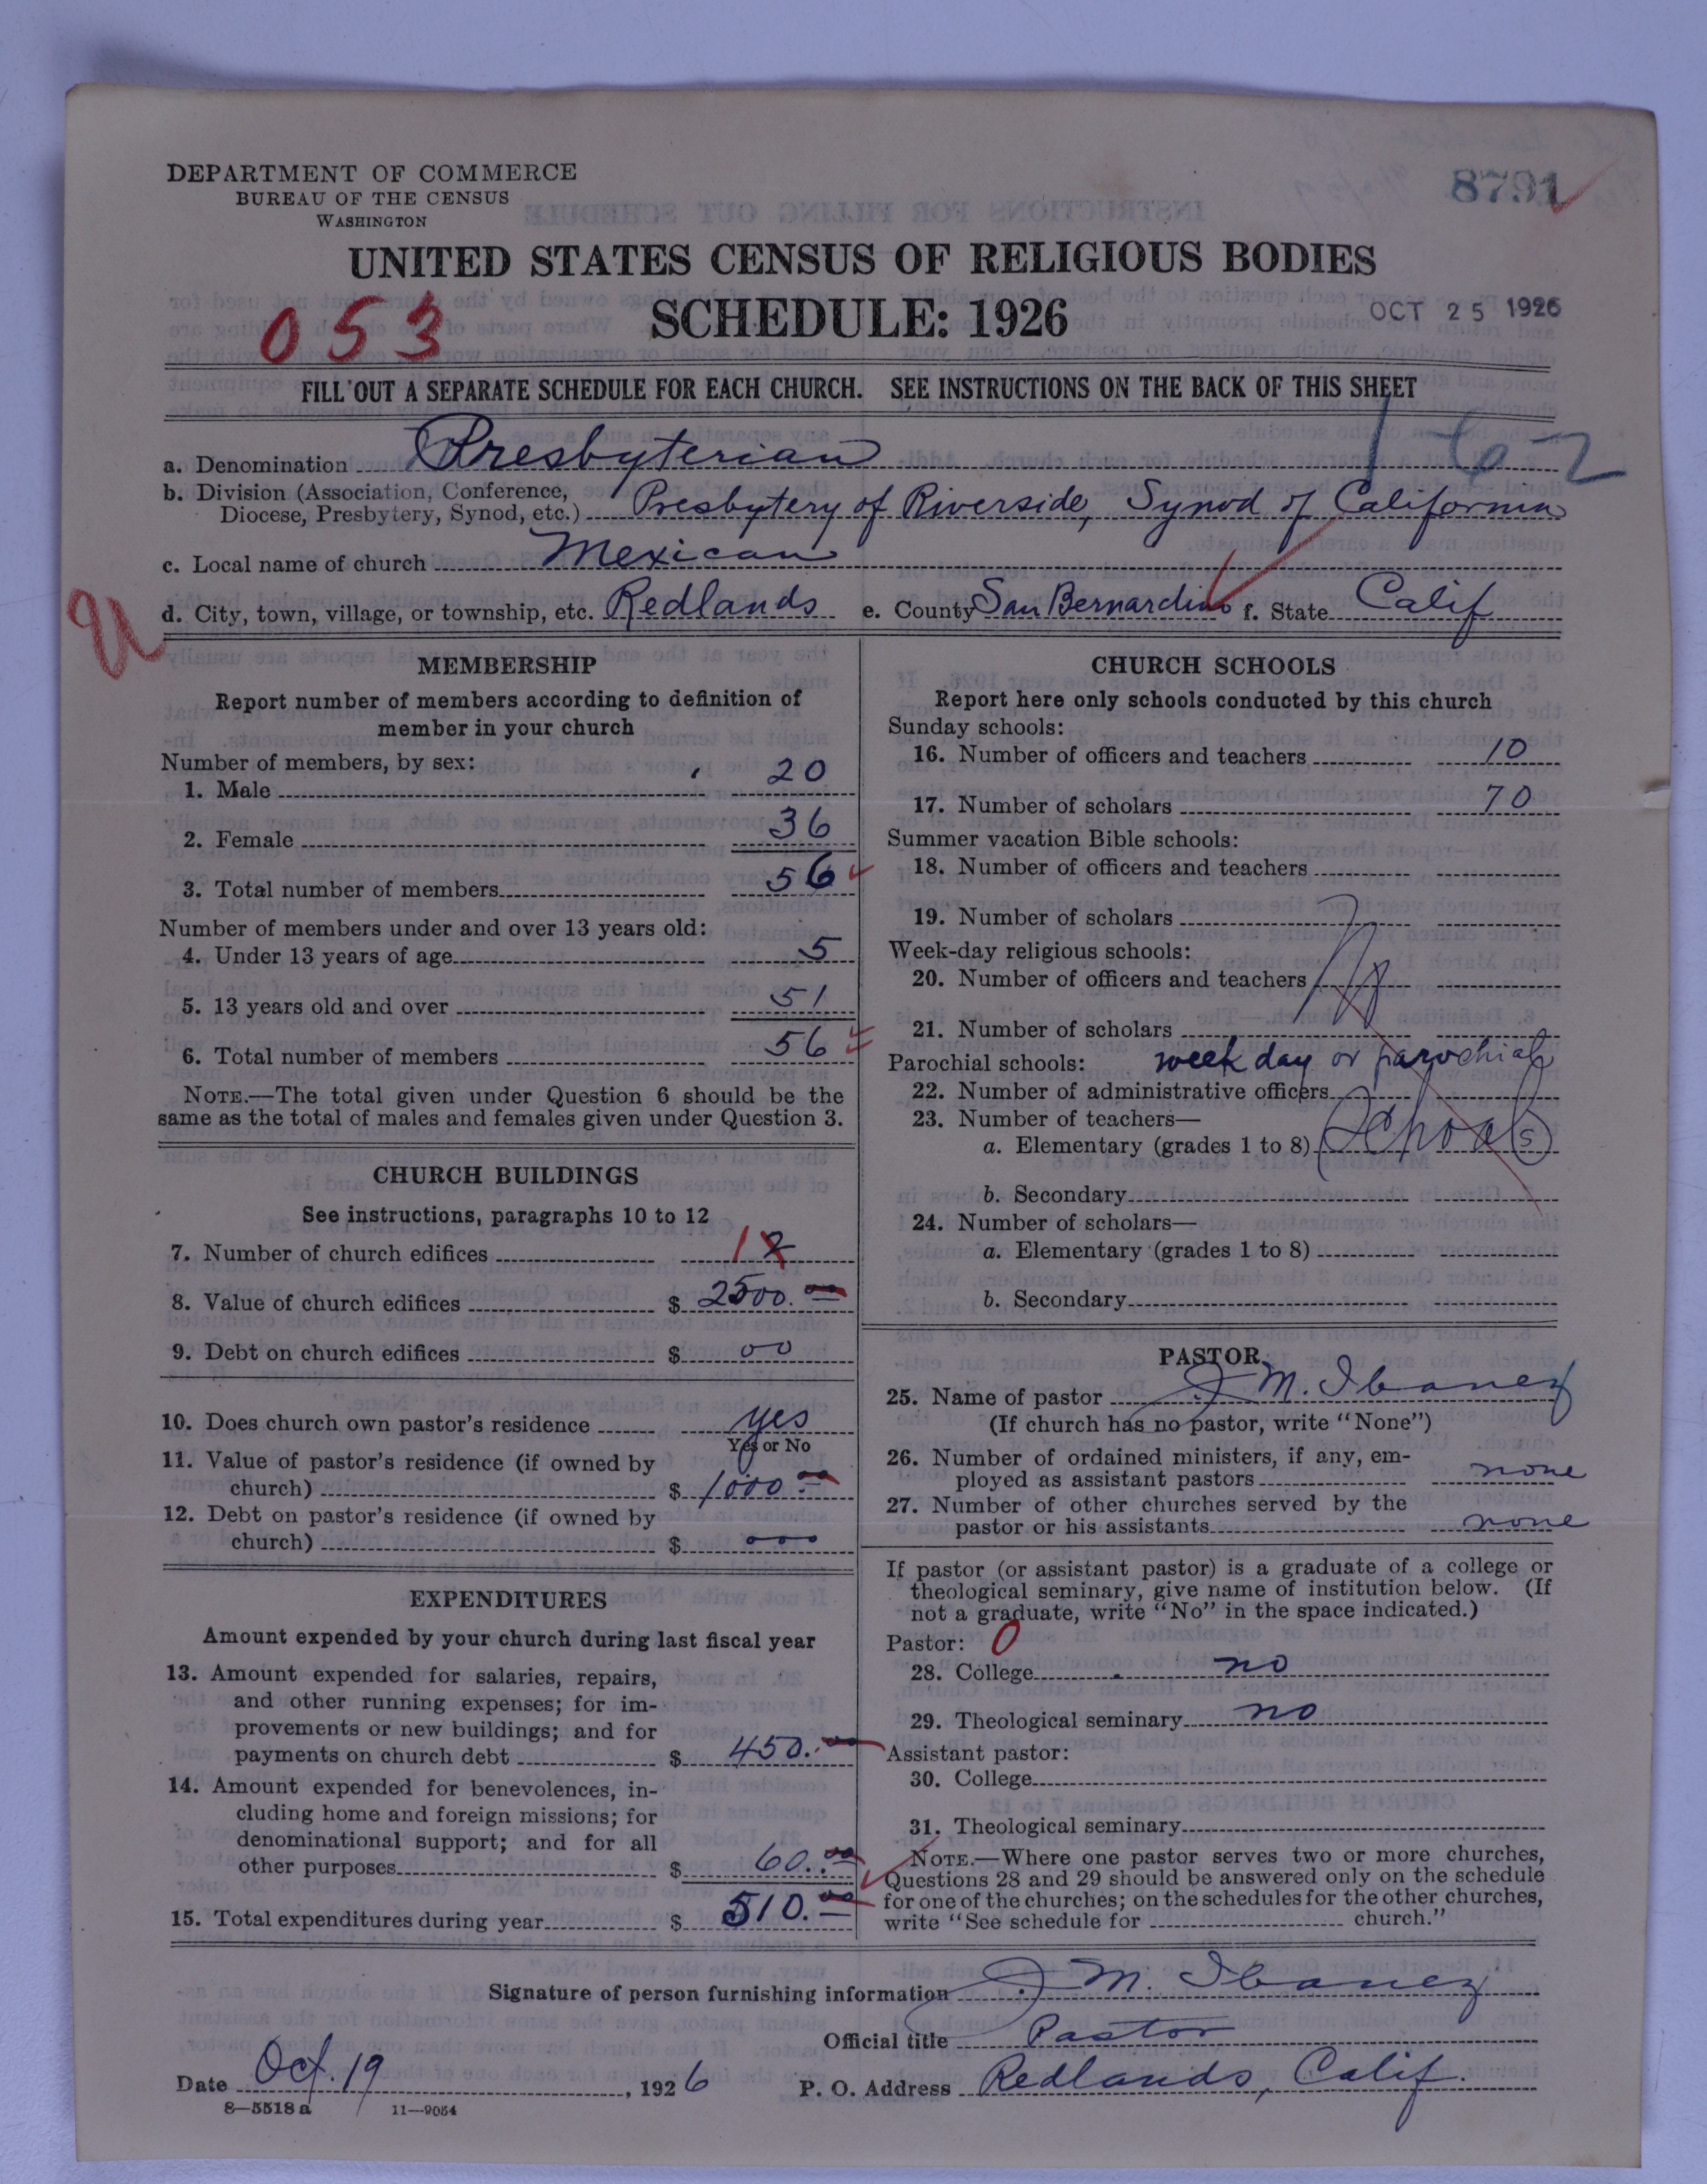 DEPARTMENT OF COMMERCE
BUREAU OF THE CENSUS
WASHINGTON
8791
UNITED STATES CENSUS OF RELIGIOUS BODIES
SCHEDULE: 1926
053
OCT 25 1926
FILL OUT A SEPARATE SCHEDULE FOR EACH CHURCH. SEE INSTRUCTIONS ON THE BACK OF THIS SHEET
162
a. Denomination Presbyterian
b. Division (Association, Conference, Diocese, Presbytery, Synod, etc.) Presbytery of Riverside, Synod of California
c. Local name of church Mexican
d. City, town, village, or township, etc. Redlands e. County San Bernardino f. State Calif
MEMBERSHIP
Report number of members according to definition of
member in your church
Number of members, by sex:
1. Male 20
2. Female 36
3. Total number of members 56
Number of members under and over 13 years old:
4. Under 13 years of age 5
5. 13 years old and over 51
6. Total number of members 56
NOTE.—The total given under Question 6 should be the
same as the total of males and females given under Question 3.
CHURCH BUILDINGS
See instructions, paragraphs 10 to 12
7. Number of church edifices 1 2
8. Value of church edifices $ 2500.00
9. Debt on church edifices $ 00
10. Does church own pastor's residence yes
Yes or No
11. Value of pastor's residence (if owned by
church) $ 1000.00
12. Debt on pastor's residence (if owned by
church) $ 000
EXPENDITURES
Amount expended by your church during last fiscal year
13. Amount expended for salaries, repairs,
and other running expenses; for im-
provements or new buildings; and for
payments on church debt $ 450.00
14. Amount expended for benevolences, in-
cluding home and foreign missions; for
denominational support; and for all
other purposes $ 60.00
15. Total expenditures during year $ 510.00
CHURCH SCHOOLS
Report here only schools conducted by this church
Sunday schools:
16. Number of officers and teachers 10
17. Number of scholars 70
Summer vacation Bible schools:
18. Number of officers and teachers
19. Number of scholars
Week-day religious schools:
20. Number of officers and teachers No
21. Number of scholars
Parochial schools: week day or parochial
22. Number of administrative officers
23. Number of teachers—
a. Elementary (grades 1 to 8) Schools
b. Secondary
24. Number of scholars—
a. Elementary (grades 1 to 8)
b. Secondary
PASTOR
25. Name of pastor J. M. Ibanez
(If church has no pastor, write "None")
26. Number of ordained ministers, if any, em-
ployed as assistant pastors none
27. Number of other churches served by the
pastor or his assistants none
If pastor (or assistant pastor) is a graduate of a college or
theological seminary, give name of institution below. (If
not a graduate, write "No" in the space indicated.)
Pastor: 0
28. College no
29. Theological seminary no
Assistant pastor:
30. College
31. Theological seminary
NOTE.—Where one pastor serves two or more churches,
Questions 28 and 29 should be answered only on the schedule
for one of the churches; on the schedules for the other churches,
write "See schedule for church."
Signature of person furnishing information J. M. Ibanez
Official title Pastor
Date Oct. 19, 1926 P. O. Address Redlands, Calif.
8—5518 a 11—9054